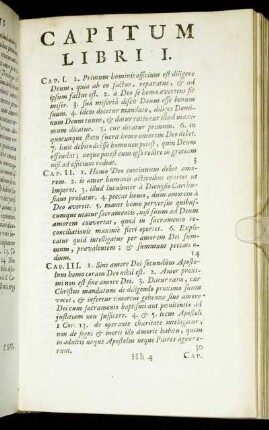 CAPITUM
LIBRI I.
CAP. I. 1. Primum hominis officium est diligere
Deum, quia ab eo factus, reparatus, & ad
ipsum factus est. 2. à Deo se homo avertens fit
miser. 3. suâ miseriâ discit Deum esse bonum
suum. 4. idem docetur mandato, diliges Domi-
num Deum tuum, & cur illud maxi-
mum dicatur. 5. cur dicatur primum. 6. in
quocunque statu fuerit homo amorem Deo debet.
7. huic debito deesse homo potest, quin Deum
offendat; neque potest cum eo redire in gratiam
nisi ad officium redeat. 5
CAP. II. 1. Homo Deo continuum debet amo-
rem. 2. is amor hominis actionibus oportet ut
imperet. 3. illud luculenter à Dionysio Carthu-
siano probatur. 4. peccat homo, dum amorem à
Deo avertit. 5. manet homo perversus quibus-
cumque utatur sacramentis, nisi suum ad Deum
amorem convertat, quod in sacramento re-
conciliationis maximè fieri oportet. 6. Expli-
catur quid intelligatur per amorem Dei sum-
mum, prævalentem; & summum peccati o-
dium. 14
CAP. III. 1. Sine amore Dei secundùm Aposto-
lum homo coram Deo nihil est. 2. Amor proxi-
mi non est sine amore Dei. 3. Datur ratio, cur
Christus mandatum de diligendo proximo suum
vocet, & infertur timorem gehennæ sine amore
Dei cum sacramento baptismi aut pœnitentiæ ad
justitiam non sufficere. 4. & 5. locum Apostoli
1 Cor. 13. de operante charitate intelligitur,
non de segni & inerti illo amoris habitu, quem
in adultis neque Apostolus neque Patres agnove-
runt. 30
Hh 4 CAP.